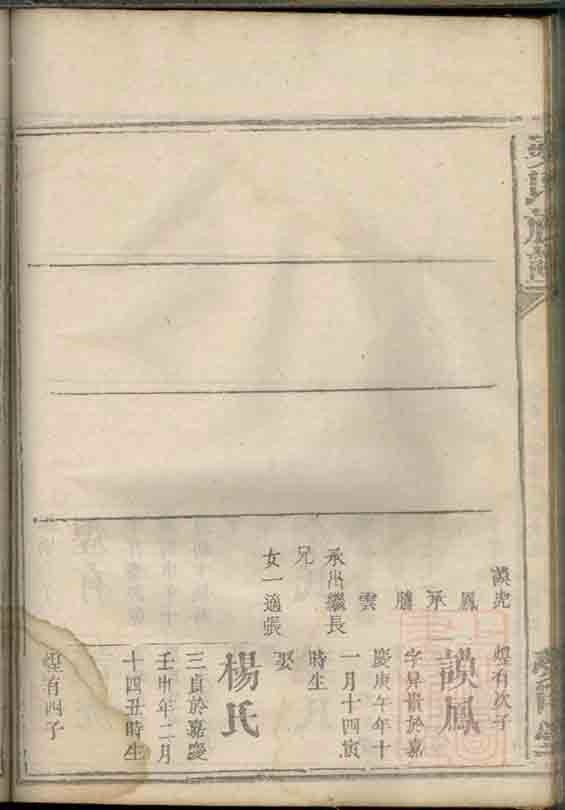 氏族譜
謨光
鳳
承
騰
雲
承出繼長
兄
女一適張
煌有次子
謨鳳
字昇貴於嘉
慶庚午年十
一月十四寅
時生
娶
楊氏
三貞於嘉慶
壬申年二月
十四丑時生
煌有四子